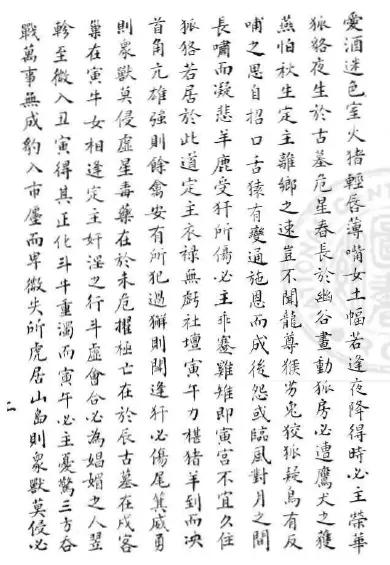 愛酒迷色室火猪輕唇薄嘴女土蝠若逢夜降得時必主榮華
狐狢夜生於古墓危星春長於幽谷晝動狐房必遭鷹犬之獲
燕怕秋生定主離鄉之速豈不聞龍尊猴劣兔狡狐疑烏有反
哺之恩自招口舌猿有變通施恩而成後怨或臨風對月之間
長嘯而凝悲羊鹿受犴所傷必主非蹇雞雉即寅宮不宜久住
狐狢若居於此道定主衣祿無虧社壇寅午力椹猪羊到而泱
首角亢雄強則餘禽安有所犯過獬則聞逢犴必傷尾箕威勇
則衆獸莫侵虛星毒藥在於未危擢極亡在於辰古墓在戍客
巢在寅牛女相逢定主奸淫之行斗虛會合必為娼媚之人翌
軫至微入丑寅得其正化斗牛重濁而寅午必主憂驚三方吞
戰萬事無成豹入市廛而卑微失所虎居山島則衆獸莫侵必
二